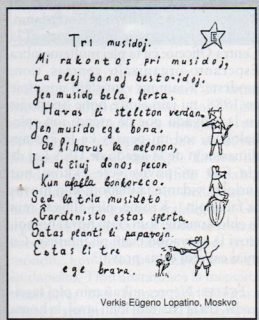 Tri musidoj.
E
Mi rakontos pri musidoj,
La plej bonaj besto-idoj.
Jen musido bela, lerta.
Havas li steleton verdan.
Jen musido ege bona.
Se li havus la melonon,
Li al ĉiuj donos pecon
Kun afabla bonkoreco.
Sed la tria musideto
Ĝardenisto estas sperta.
Ŝatas planti li papavojn.
Estas li tre
ege brava.
Verkis Eŭgeno Lopatino, Moskvo